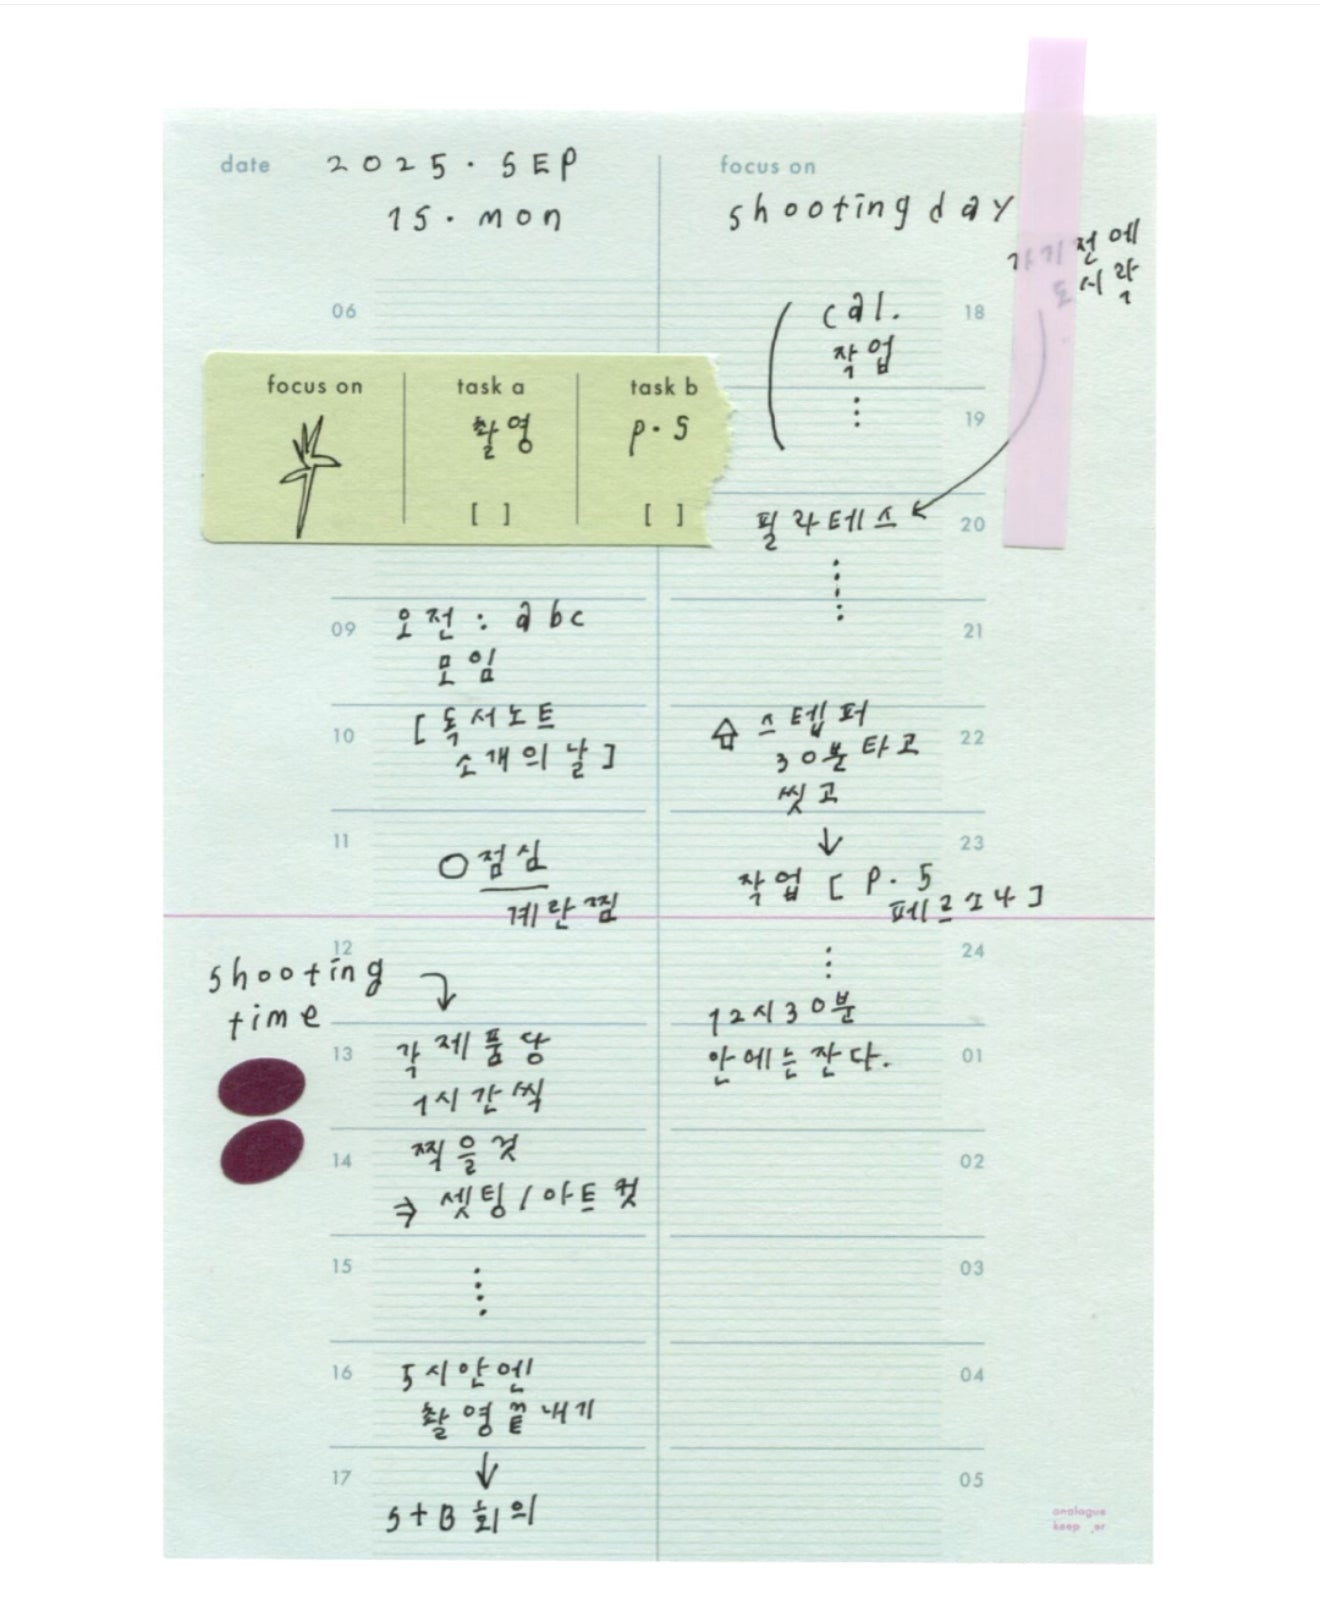 date 2025. SEP
15. mon
focus on
shooting day
가기전에
도시락
06
focus on
task a
task b
촬영
p. 5
[ ]
[ ]
09 오전 : abc
모임
10 [ 독서노트
소개의 날 ]
11
○ 점심
계란찜
12
shooting
time
13 각 제품당
1시간씩
14 찍을것
⇒ 셋팅 / 아트 컷
15
16 5시안엔
촬영끝내기
↓
17
S+B 회의
cal. 18
작업
19
필라테스 20
21
스텝퍼 22
30분 타고
씻고
↓ 23
작업 [ p. 5
페르소나 ]
24
12시30분
안에는잔다. 01
02
03
04
05
analogue
keep er